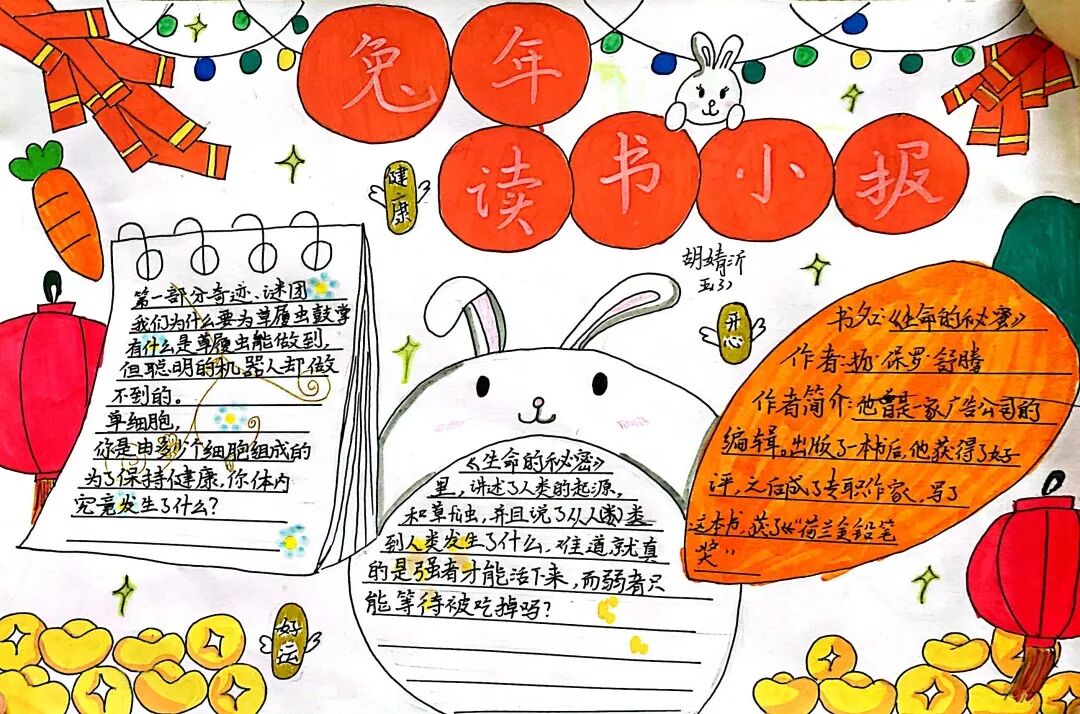 兔年
读书小报
健康
胡婧沂
五(3)
开心
第一部分奇迹、谜团
我们为什么要为草履虫鼓掌
有什么是草履虫能做到,
但聪明的机器人却做
不到的。
单细胞,
你是由多少个细胞组成的
为了保持健康,你体内
究竟发生了什么?
《生命的秘密》
里,讲述了人类的起源,
和草
虫,并且说了从人
类
到人类发生了什么,难道就真
的是强者才能活下来,而弱者只
能等待被吃掉吗?
书名:《生命的秘密》
作者:扬·保罗·舒腾
作者简介:他曾是一家广告公司的
编辑。出版了一本书后,他获得了好
评,之后成了专职作家,写了
这本书,获了《"荷兰金铅笔
奖"
好运